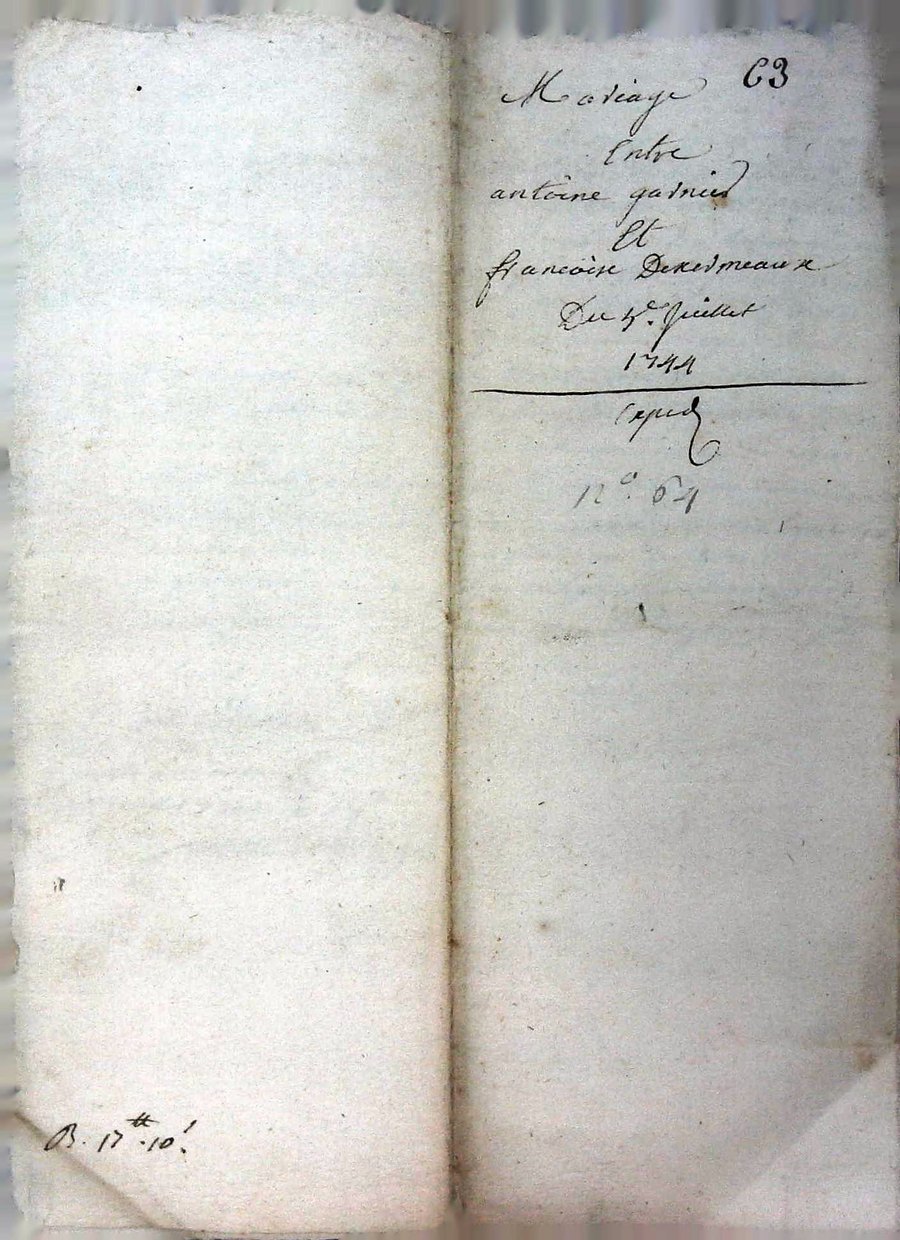 63
Mariage
Entre
antoine garnier
Et
francoise Desermeaux
Du 5e. Juillet
1744
Exped
n°. 64
R. 17tt. 10s.